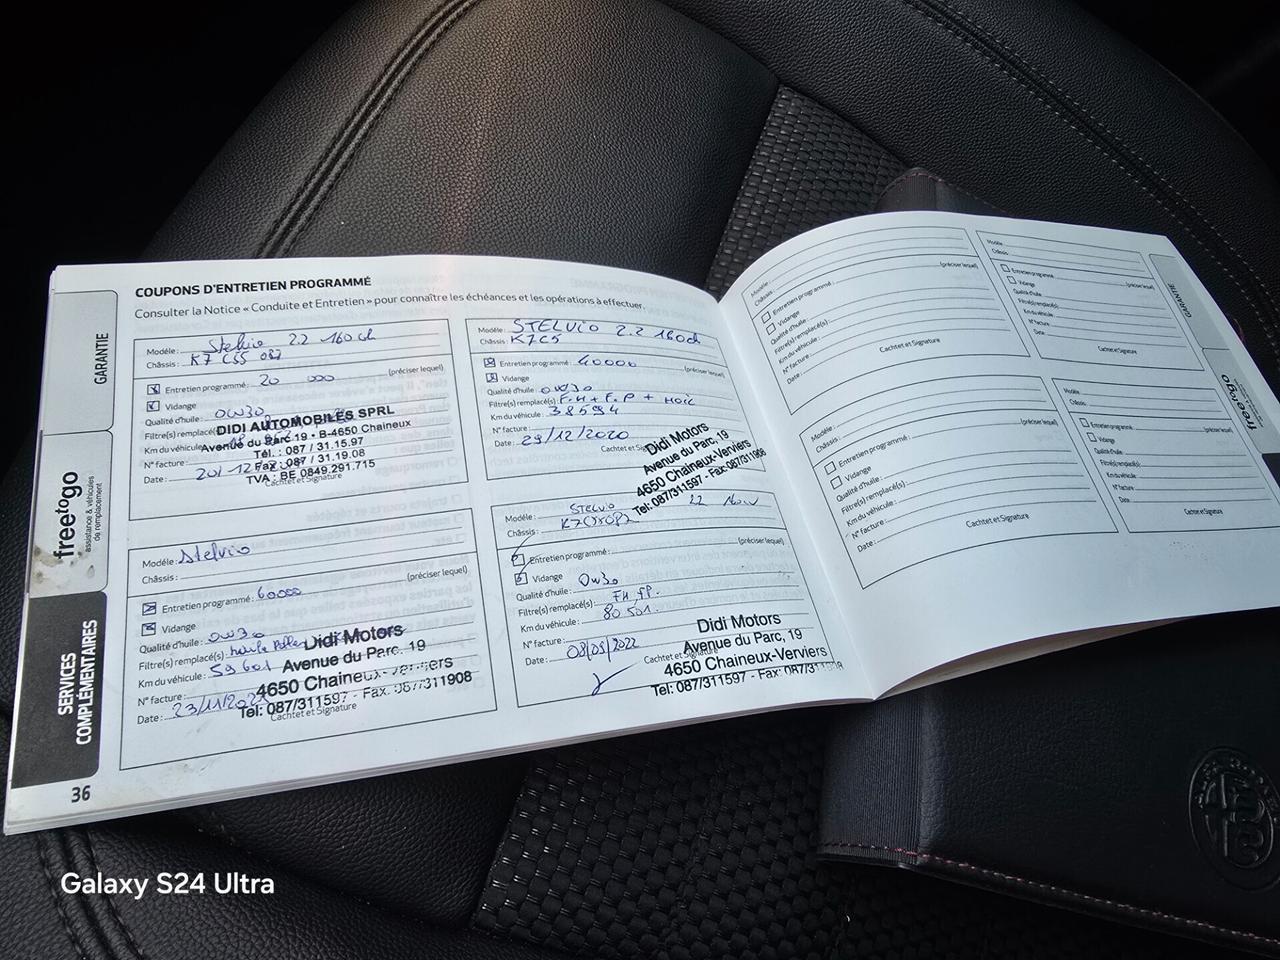 COUPONS D'ENTRETIEN PROGRAMMÉ
Consulter la Notice « Conduite et Entretien » pour connaître les échéances et les opérations à effectuer.
GARANTIE
freetogo
assistance & véhicules
de remplacement
SERVICES
COMPLÉMENTAIRES
36
Modèle : Stelvio 2.2 160ch
Châssis :
Entretien programmé : 20 000 (préciser lequel)
Vidange
Qualité d'huile : 0W30
Filtre(s) remplacé(s)
Km du véhicule
N° facture :
Date :
Cachtet et Signature
DIDI AUTOMOBILES SPRL
Avenue du Parc 19 • B-4650 Chaineux
Tél. : 087 / 31.15.97
Fax : 087 / 31.19.08
TVA : BE 0849.291.715
Modèle : STELVIO 2.2 160ch
Châssis : K7C5
Entretien programmé : 40000 (préciser lequel)
Vidange
Qualité d'huile : 0W30
Filtre(s) remplacé(s) : F.H + F.P +
Km du véhicule : 38594
N° facture :
Date : 29/12/2020
Didi Motors
Avenue du Parc, 19
4650 Chaineux-Verviers
Tel: 087/311597 - Fax: 087/311908
Modèle : Stelvio
Châssis :
Entretien programmé : 60000 (préciser lequel)
Vidange
Qualité d'huile : 0W30
Filtre(s) remplacé(s) : huile
Km du véhicule : 59601
N° facture :
Date : 23/11/202
Cachtet et Signature
Didi Motors
Avenue du Parc, 19
4650 Chaineux-Verviers
Tel: 087/311597 - Fax: 087/311908
Modèle : STELVIO 22
Châssis :
Entretien programmé : (préciser lequel)
Vidange
Qualité d'huile : 0W30
Filtre(s) remplacé(s) : FH FP.
Km du véhicule : 80501.
N° facture :
Date : 08/09/2022
Cachtet et Signature
Didi Motors
Avenue du Parc, 19
4650 Chaineux-Verviers
Tel: 087/311597 - Fax: 087/311908
Modèle :
Châssis :
Entretien programmé : (préciser lequel)
Vidange
Qualité d'huile :
Filtre(s) remplacé(s) :
Km du véhicule :
N° facture :
Date :
Cachtet et Signature
Modèle :
Châssis :
Entretien programmé :
Vidange
Qualité d'huile :
Filtre(s) remplacé(s) :
Km du véhicule :
N° facture :
Date :
Cachtet et Signature
Modèle :
Châssis :
Entretien programmé : (préciser lequel)
Vidange
Qualité d'huile :
Filtre(s) remplacé(s) :
Km du véhicule :
N° facture :
Date :
Cachtet et Signature
Modèle :
Châssis :
Entretien programmé :
Vidange
Qualité d'huile :
Filtre(s) remplacé(s) :
Km du véhicule :
N° facture :
Date :
Cachtet et Signature
GARANTIE
freetogo
Galaxy S24 Ultra